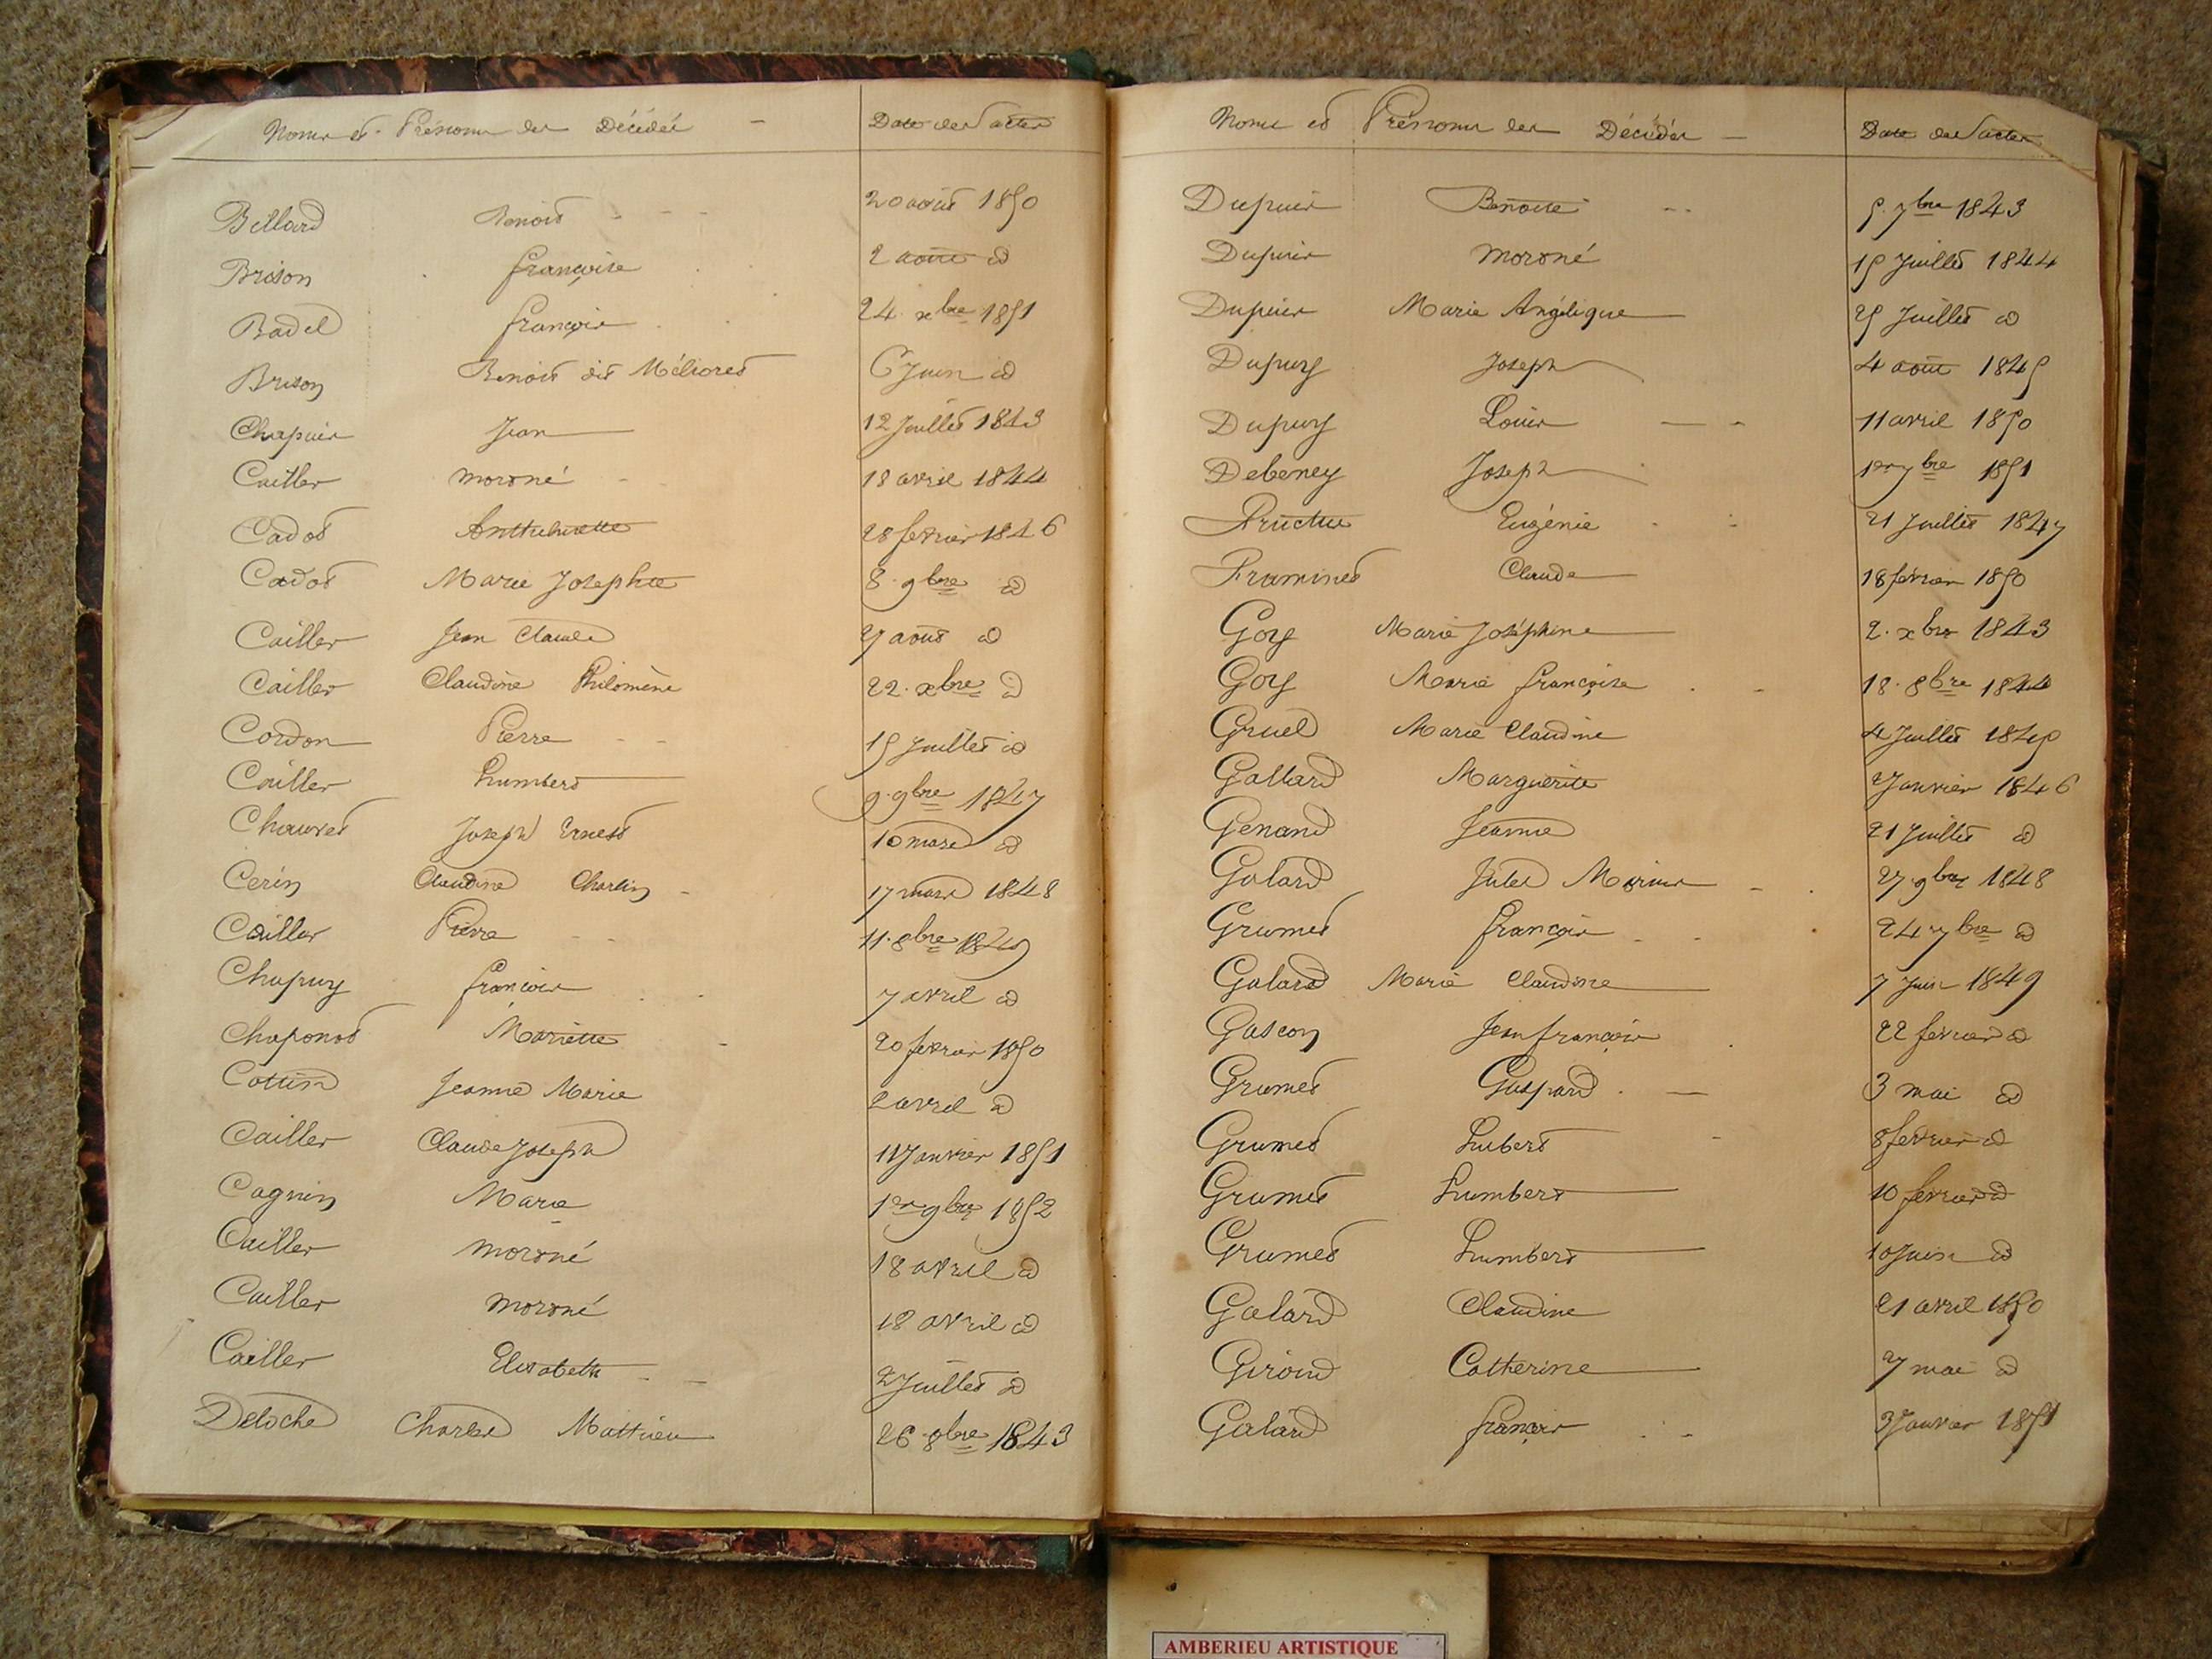 Noms et Prénoms des Décédés - Date des actes
Billard Benoit 20 août 1850
Brison françoise 2 août id
Badel françois 24 xbre 1851
Brison Benoit dit Mélioret 6 Juin id
Chapuis Jean 12 Juillet 1843
Cailler morné 18 avril 1844
Cadot Anthelmette 28 fevrier 1846
Cadot Marie Josephte 8 9bre id
Cailler Jean Claude 27 août id
Cailler Claudine Philomène 22 xbre id
Cordon Pierre 15 Juillet id
Cailler humbert 9 9bre 1847
Chauvet Joseph Ernest 10 mars id
Cerin Claudine Charlin 17 mars 1848
Cailler Pierre 11 8bre 1849
Chapuy françois 7 avril id
Chaponot Mariette 20 fevrier 1850
Cottin Jeanne Marie 2 avril id
Cailler Claude Joseph 11 Janvier 1851
Cagnin Marie 1er 9bre 1852
Cailler morné 18 avril id
Cailler morné 18 avril id
Cailler Elisabeth 2 Juillet id
Deloche Charles Mathieu 26 8bre 1843
Noms et Prénoms des Décédés - Date des actes
Dupuis Benoite 5 7bre 1843
Dupuis morné 15 Juillet 1844
Dupuis Marie Angélique 25 Juillet id
Dupuy Joseph 4 août 1845
Dupuy Louis 11 avril 1850
Debeney Joseph 1er 7bre 1851
Eugénie 21 Juillet 1847
Framinet Claude 18 février 1850
Goy Marie Joséphine 2 xbre 1843
Goy Marie françoise 18 8bre 1844
Gruel Marie Claudine 4 Juillet 1845
Gallard Marguerite 2 Janvier 1846
Genand Jeanne 21 Juillet id
Galard Jules Marius 27 9bre 1848
Grumet françois 24 7bre id
Galard Marie Claudine 7 Juin 1849
Gascon Jean françois 22 fevrier id
Grumet Gaspard 3 mai id
Grumet hubert 8 fevrier id
Grumet humbert 10 fevrier id
Grumet humbert 10 Juin id
Galard Claudine 21 avril 1850
Giroud Catherine 7 mai id
Galard françois 3 Janvier 1851
AMBERIEU ARTISTIQUE